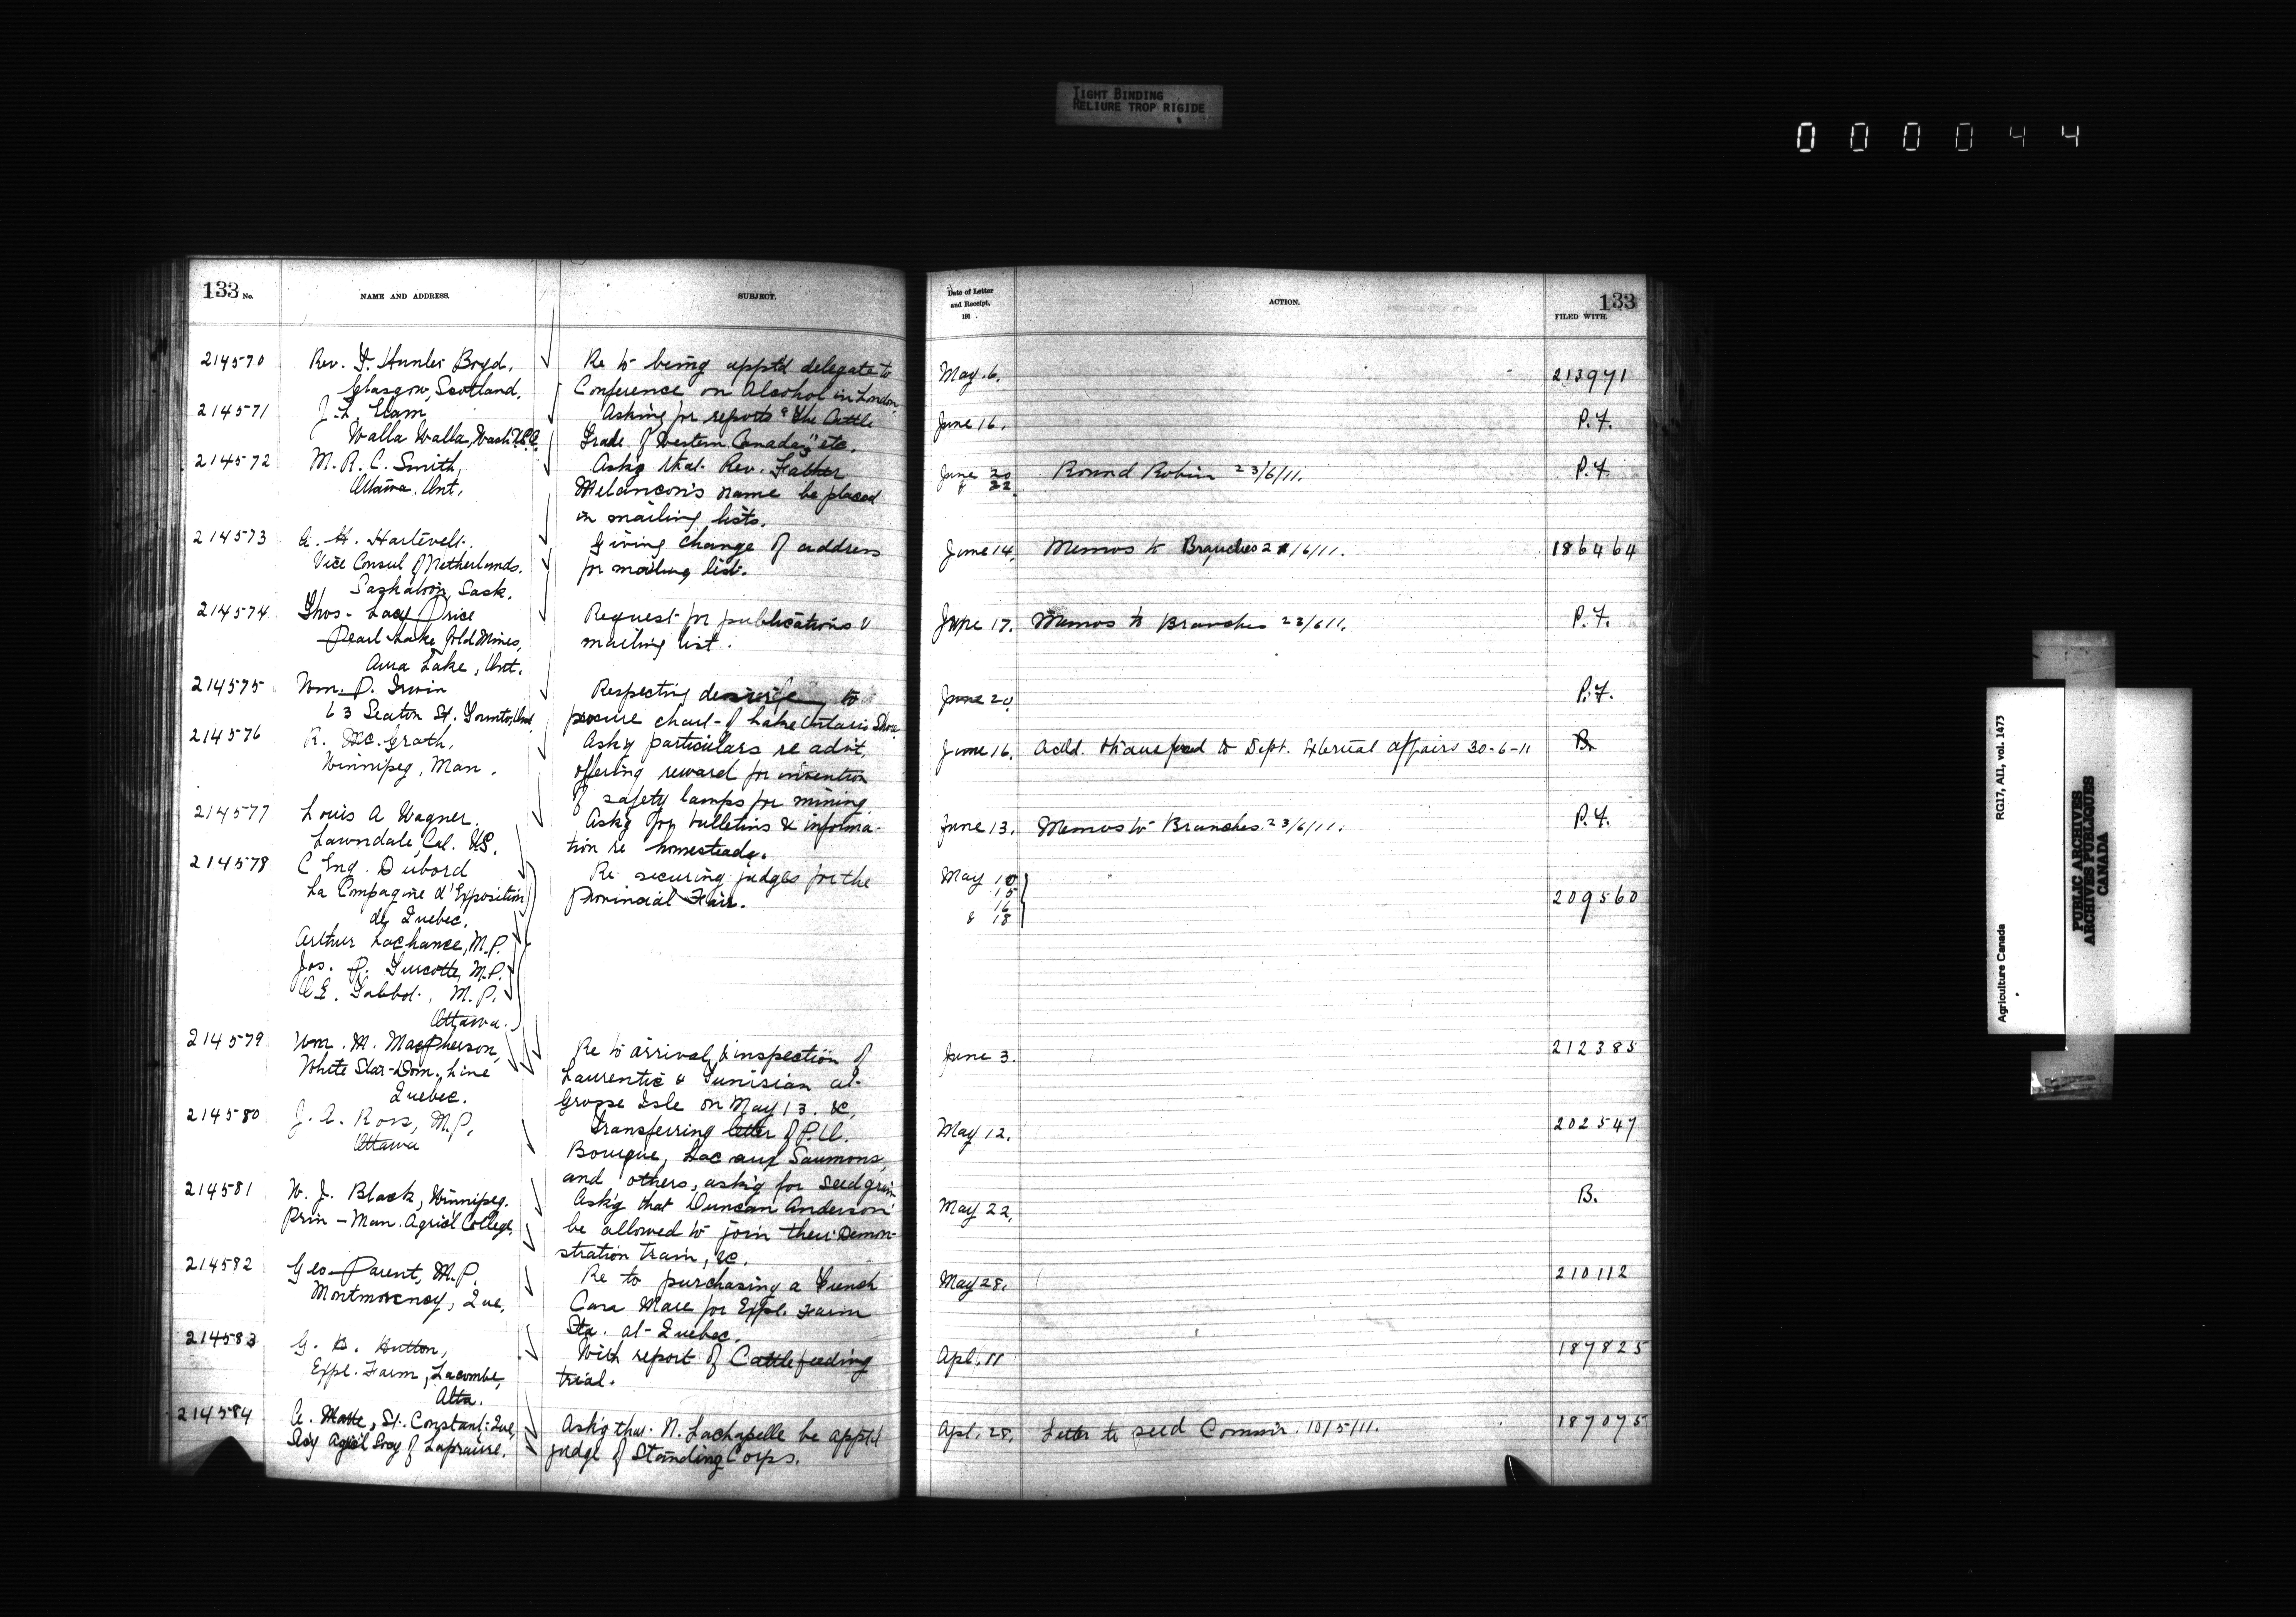 TIGHT BINDING
RELIURE TROP RIGIDE
0 0 0 0 4 4
133 No.
NAME AND ADDRESS.
SUBJECT.
Date of Letter
and Receipt,
191 .
ACTION.
133
FILED WITH.
214570 Rev. J. Hunter Boyd, Re to being appt'd delegate to May 6. 213971
Glasgow, Scotland. Conference on Alcohol in London
214571 J. L. Elam, Asking for reports "The Cattle June 16. P.F.
Walla Walla, Wash. U.S.A. Trade of Western Canada," etc.
214572 M. R. C. Smith, Ask'g that Rev. Father June 20 Round Robin 23/6/11. P.F.
Ottawa. Ont. Melancon's name be placed & 22.
on mailing lists.
214573 A. H. Hartevelt. Giving change of address June 14. Memos to Branches 2 /6/11. 186464
Vice Consul of Netherlands. for mailing list.
Saskatoon, Sask.
214574 Thos. Lacy Price Request for publications & June 17. Memos to Branches 23/6/11. P.F.
Pearl Lake Gold Mines, mailing list.
Lake, Ont.
214575 Wm. P. Irwin Respecting desire to June 20. P.F.
63 Seaton St. Toronto, Ont procure chart of Lake Ontario Shore
214576 R. McGrath, Ask'g particulars re advt. June 16. Ackd. transferred to Dept. External Affairs 30-6-11 B.
Winnipeg, Man. offering reward for invention
of safety lamps for mining.
214577 Louis A Wagner. Ask'g for bulletins & informa- June 13. Memos to Branches. 23/6/11. P.F.
Lawndale, Cal. US. tion re homesteads.
214578 C Eng. Dubord Re securing judges for the May 10
La Compagnie d'Exposition Provincial Fair. 15
de Quebec. 16 209560
& 18
Arthur Lachance, M.P.
Jos. P. Turcotte, M.P.
O E. Talbot, M.P.
Ottawa.
214579 Wm. M. MacPherson, Re to arrival & inspection of June 3. 212385
White Star-Dom. Line Laurentic & Tunisian at
Quebec. Grosse Isle on May 13. &c,
214580 J. A. Ross, M.P. Transferring letter of P.A. May 12. 202547
Ottawa Bourque, Lac aux Saumons,
and others, ask'g for seed grain
214581 W. J. Black, Winnipeg. Ask'g that Duncan Anderson May 22. B.
Prin - Man. Agric'l College. be allowed to join their Demon-
stration train, &c.
214582 Geo Parent, M.P. Re to purchasing a French May 28. 210112
Montmorency, Que. Cana Mare for Expl. Farm
Sta. at Quebec.
214583 G. H. Hutton, With report of Cattle feeding Apl. 11 187825
Expl. Farm, Lacombe, trial.
Alta.
214584 A. , St. Constant, Que, Ask'g that N. Lachapelle be appt'd Apl. 28. Letter to seed Commr. 10/5/11. 187075
Secy Agric'l Socy of Laprairie. judge of Standing Corps.
Agriculture Canada RG17, AII, vol. 1473
PUBLIC ARCHIVES
ARCHIVES PUBLIQUES
CANADA